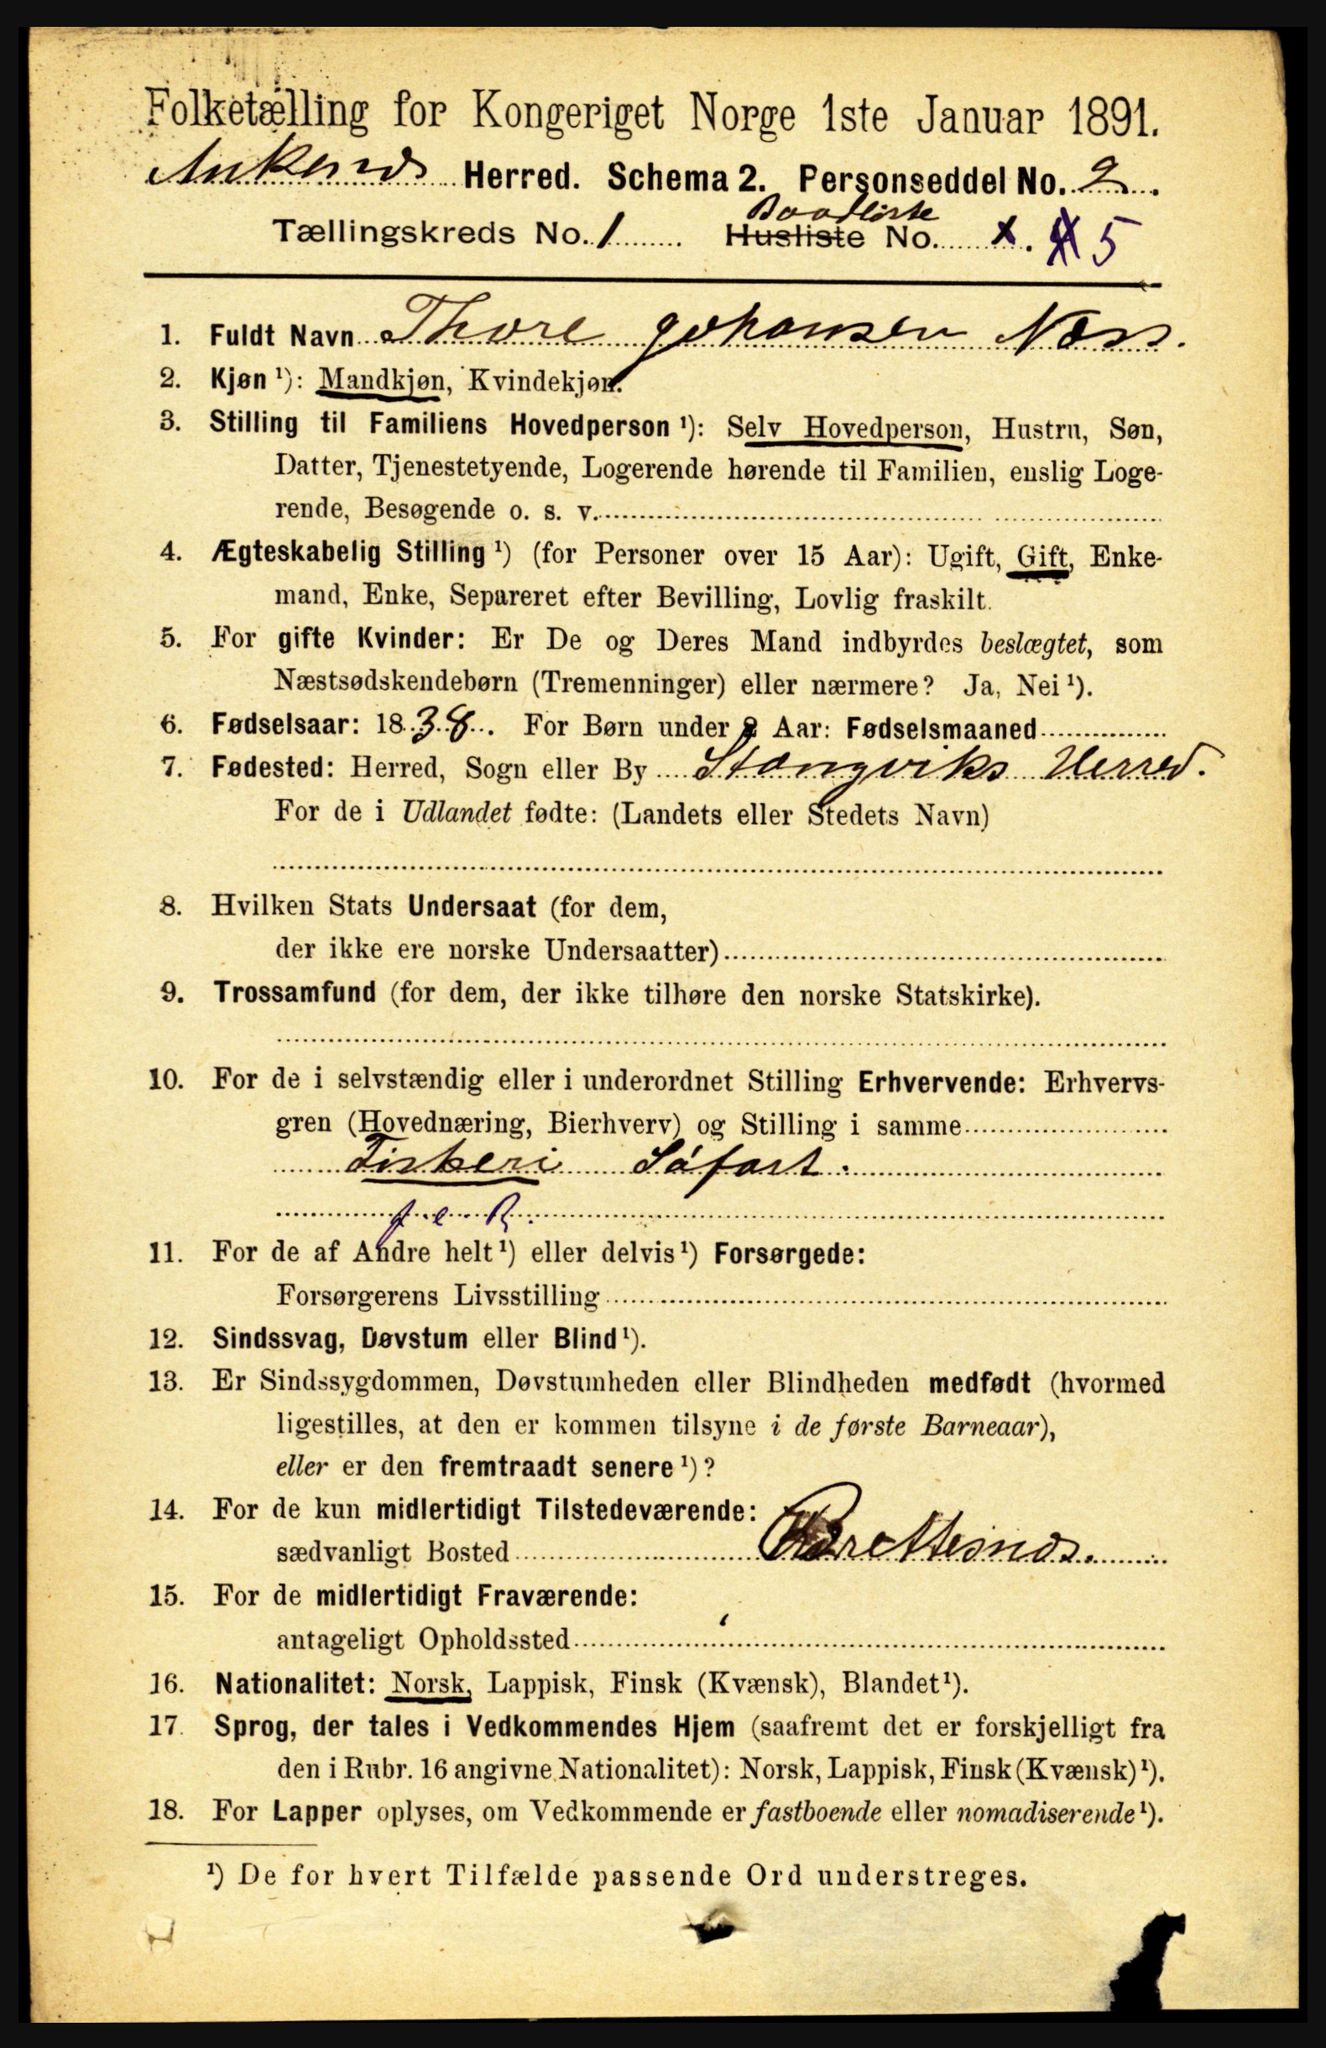 Folketælling for Kongeriget Norge 1ste Januar 1891.
Ankenæs Herred. Schema 2. Personseddel No. 2.
Baadliste
Tællingskreds No. 1 Husliste No. x. 5
1. Fuldt Navn Thore Johansen Næss.
2. Kjøn ¹): Mandkjøn, Kvindekjøn.
3. Stilling til Familiens Hovedperson ¹): Selv Hovedperson, Hustru, Søn,
Datter, Tjenestetyende, Logerende hørende til Familien, enslig Loge-
rende, Besøgende o. s. v.
4. Ægteskabelig Stilling ¹) (for Personer over 15 Aar): Ugift, Gift, Enke-
mand, Enke, Separeret efter Bevilling, Lovlig fraskilt.
5. For gifte Kvinder: Er De og Deres Mand indbyrdes beslægtet, som
Næstsødskendebørn (Tremenninger) eller nærmere? Ja, Nei ¹).
6. Fødselsaar: 1838. For Børn under 2 Aar: Fødselsmaaned
7. Fødested: Herred, Sogn eller By Stangviks Herred.
For de i Udlandet fødte: (Landets eller Stedets Navn)
8. Hvilken Stats Undersaat (for dem,
der ikke ere norske Undersaatter)
9. Trossamfund (for dem, der ikke tilhøre den norske Statskirke).
10. For de i selvstændig eller i underordnet Stilling Erhvervende: Erhvervs-
gren (Hovednæring, Bierhverv) og Stilling i samme
Fiskeri Søfart.
11. For de af Andre helt ¹) eller delvis ¹) Forsørgede:
Forsørgerens Livsstilling
12. Sindssvag, Døvstum eller Blind ¹).
13. Er Sindssygdommen, Døvstumheden eller Blindheden medfødt (hvormed
ligestilles, at den er kommen tilsyne i de første Barneaar),
eller er den fremtraadt senere ¹)?
14. For de kun midlertidigt Tilstedeværende:
sædvanligt Bosted Brettesnæs.
15. For de midlertidigt Fraværende:
antageligt Opholdssted
16. Nationalitet: Norsk, Lappisk, Finsk (Kvænsk), Blandet ¹).
17. Sprog, der tales i Vedkommendes Hjem (saafremt det er forskjelligt fra
den i Rubr. 16 angivne Nationalitet): Norsk, Lappisk, Finsk (Kvænsk) ¹).
18. For Lapper oplyses, om Vedkommende er fastboende eller nomadiserende ¹).
¹) De for hvert Tilfælde passende Ord understreges.